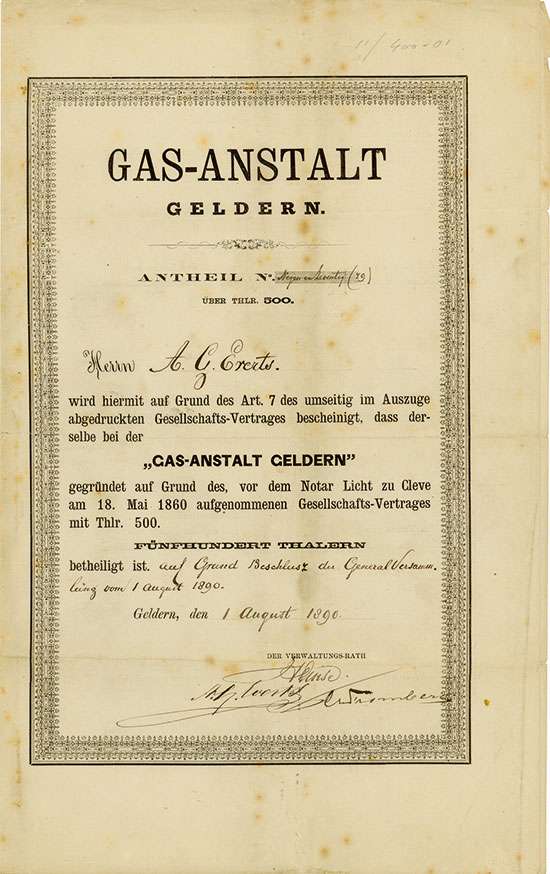 GAS-ANSTALT
GELDERN.
ANTHEIL No. (79)
ÜBER THLR. 500.
Herrn A. G. Ererts.
wird hiermit auf Grund des Art. 7 des umseitig im Auszuge
abgedruckten Gesellschafts-Vertrages bescheinigt, dass der-
selbe bei der
„GAS-ANSTALT GELDERN"
gegründet auf Grund des, vor dem Notar Licht zu Cleve
am 18. Mai 1860 aufgenommenen Gesellschafts-Vertrages
mit Thlr. 500.
FÜNFHUNDERT THALERN
betheiligt ist. auf Grund Beschluss der General Versamm-
lung vom 1 August 1890.
Geldern, den 1 August 1890.
DER VERWALTUNGS-RATH